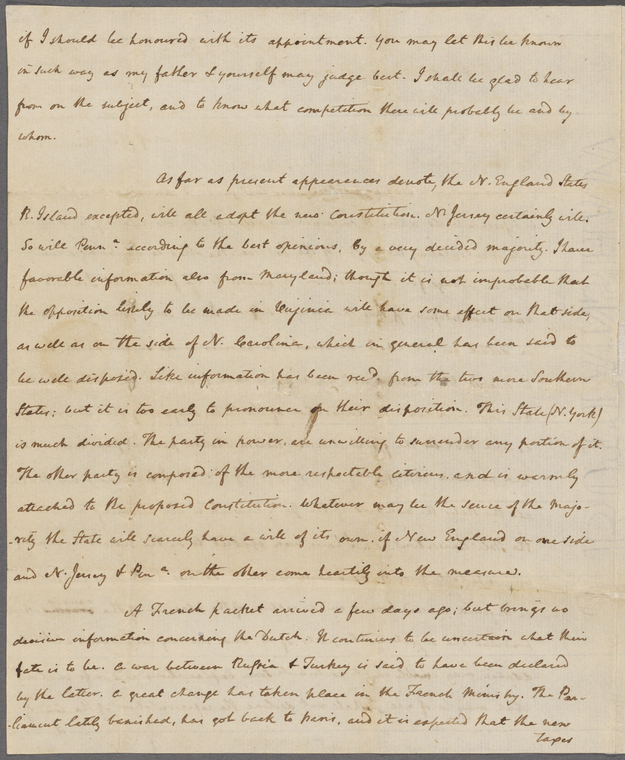 if I should be honoured with its appointment. You may let this be known
in such way as my father & yourself may judge best. I shall be glad to hear
from on the subject, and to know what competition there will probably be and by
whom.
As far as present appearances denote, the N. England States
R. Island excepted, will all adopt the new Constitution. N. Jersey certainly will.
So will Penna. according to the best opinions, by a very decided majority. I have
favorable information also from Maryland; though it is not improbable that
the opposition likely to be made in Virginia will have some effect on that side,
as well as on the side of N. Carolina, which in general has been said to
be well disposed. Like information has been recd. from the two more Southern
States; but it is too early to pronounce on their disposition. This State (N. York)
is much divided. The party in power, are unwilling to surrender any portion of it.
The other party is composed of the more respectable citizens, and is warmly
attached to the proposed Constitution. Whatever may be the sence of the majo-
-rity the State will scarcely have a will of its own, if New England on one side
and N. Jersey & Pena. on the other come heartily into the measure.
A French packet arrived a few days ago; but brings no
decisive information concerning the Dutch. It continues to be uncertain what their
fate is to be. A war between Russia & Turkey is said to have been declared
by the latter. A great change has taken place in the French Ministry. The Par-
-liament lately banished, has got back to Paris, and it is expected that the new
taxes